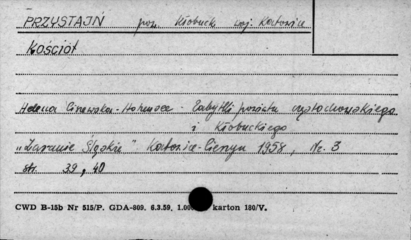 PRZYSTAJŃ pow. Kłobuck woj: Katowice
KOŚCIÓŁ
Helena - Zabytki powiatu częstochowskiego
i Kłobuckiego
"Zaranie Śląskie" Katowice-Cieszyn 1958, Nr. 3
str. 39, 40
CWD B-15b Nr 515/P. GDA-809. 6.3.59. 1.00 karton 180/V.